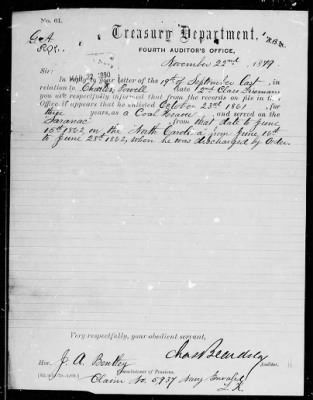 No. 61.
G. A.
Treasury Department,
FOURTH AUDITOR'S OFFICE,
November 22nd, 1879.
Sir:
In reply to your letter of the 19th of September last, in
relation to Charles Powell late 2nd Class Fireman
you are respectfully informed that from the records on file in this
Office, it appears that he enlisted October 23rd 1861 for
three years, as a Coal Heaver and served on the
Saranac from that date to June
15th 1862 on the North Carolina from June 16th
to June 28th 1862, when he was discharged by Order
Very respectfully, your obedient servant,
Chas Beardsley
Auditor.
Hon. J. A. Bentley
Commissioner of Pensions.
Claim No. 5937 Navy Invalid